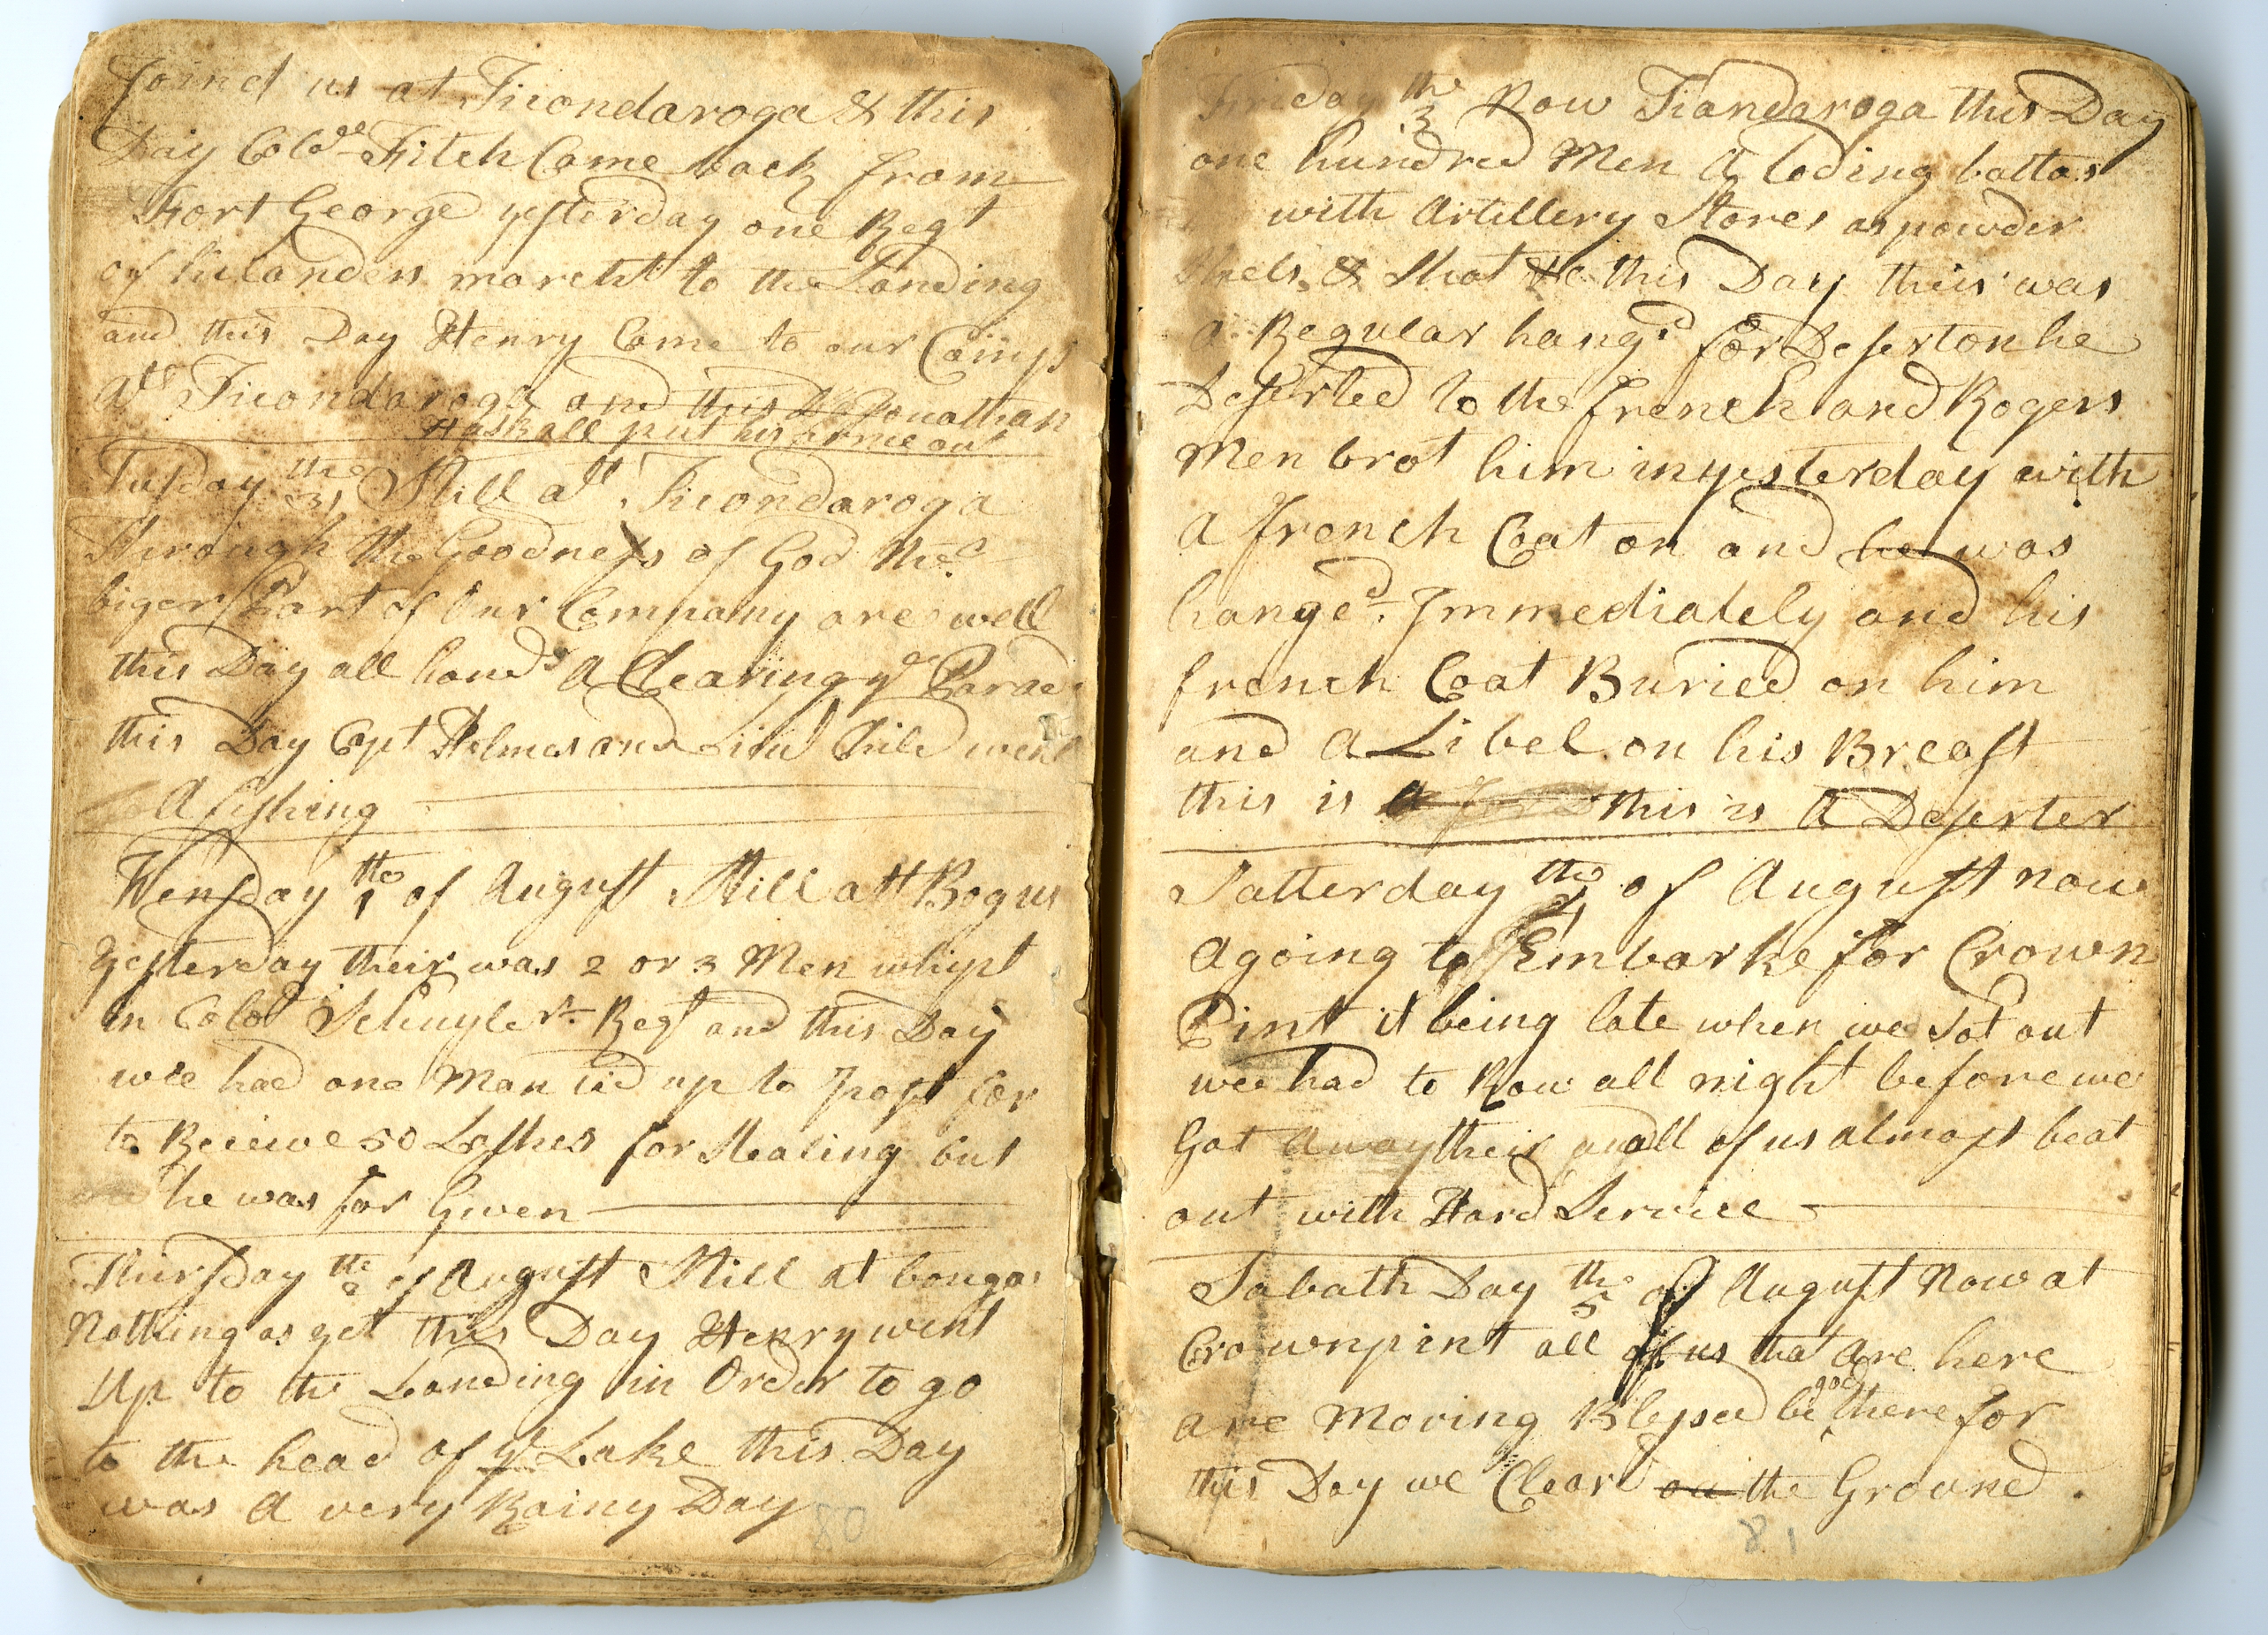 Joind us at Ticondaroga & this
Day Colo Fitch Came back from
Fort George yesterday one Regt
of hilanders marcht to the Landing
and this Day Henry Came to our Camp
att Ticondaroga and this Jonathan
Haskall put his arme out
Tusday the 31 Still att Ticondaroga
Through the Goodness of God the
biger Part of Our Company are well
this Day all hands A Clearing ye Parade
this Day Capt Holmes and Child went
A fishing
Wensday the 1 of August Still att Bogus
Yesterday their was 2 or 3 Men whipt
in Colol Schuylers Regt and this Day
wee had one Man tid up to Post for
to Receive 50 Lashes for Stealing but
he was for Given
Thursday the 2 of August Still at bougas
Nothing as yet this Day Henry went
Up to the Landing in Order to go
to the head of ye Lake this Day
was A very Rainy Day
80
Friday the 3 Now Tiandaroga this Day
one hundred Men A loding battas
with Artillery Stores as powder
Shels & Shot this Day thier was
A Regular hangd for Deserton he
Deserted to the french and Rogers
Men brot him in yesterday with
A french Coat on and he was
hanged Immediately and his
french Coat Buried on him
and A Libel on his Breast
this is a this is A Deserter
Satterday the 4 of August now
Agoing to Embarke for Crown
Pint it being late when we Sot out
wee had to Row all night before we
Got Away their and all of us almost beat
out with Hard Service
Sabath Day the 5 of August Now at
Crownpint all of us that are here
are Moving Blessed be god there for
this Day we Cleard on the Ground.
81